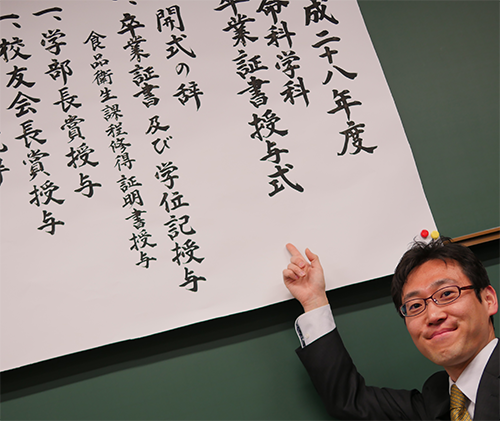 成二十八年度
命科学科
卒業証書授与式
開式の辞
一、卒業証書及び学位記授与
食品衛生課程修得証明書授与
一、学部長賞授与
一、校友会長賞授与